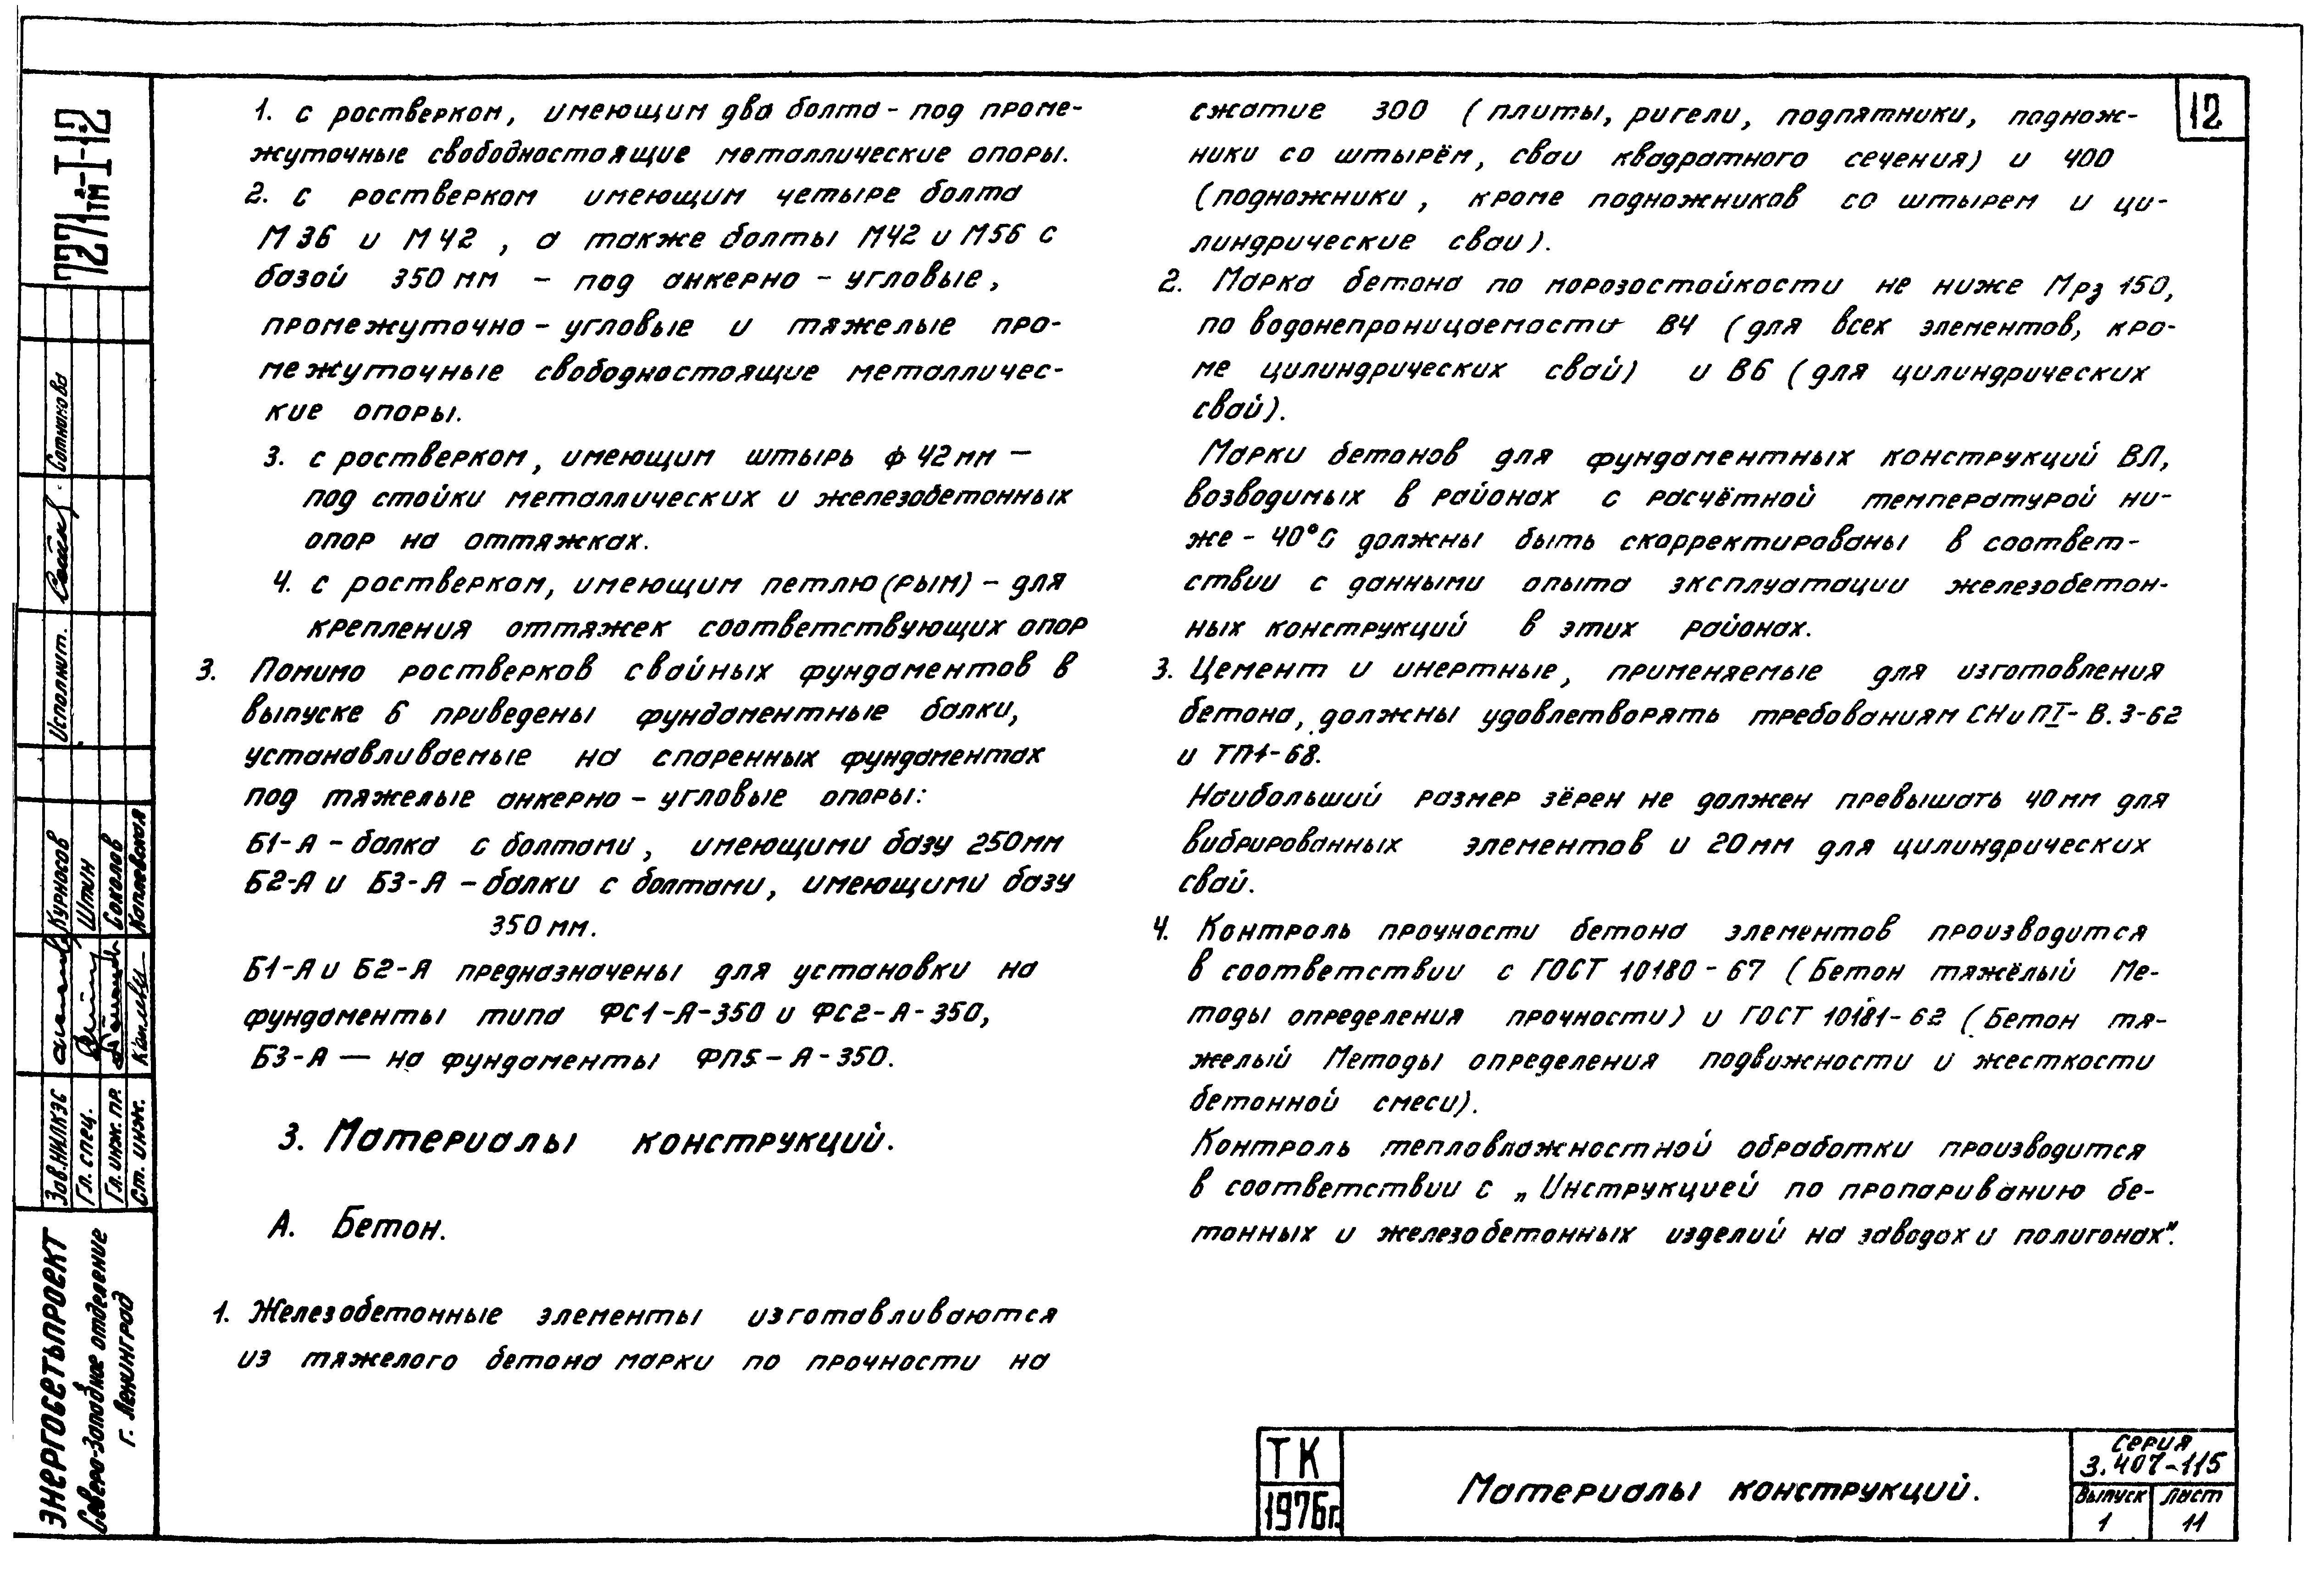 12
1. с ростверком, имеющим два болта - под проме-
жуточные свободностоящие металлические опоры.
2. с ростверком имеющим четыре болта
М 36 и М 42 , а также болты М42 и М56 с
базой 350 мм - под анкерно - угловые,
промежуточно - угловые и тяжелые про-
межуточные свободностоящие металличес-
кие опоры.
3. с ростверком, имеющим штырь ф 42 мм —
под стойки металлических и железобетонных
опор на оттяжках.
4. с ростверком, имеющим петлю (рым) - для
крепления оттяжек соответствующих опор
3. Помимо ростверков свайных фундаментов в
выпуске 6 приведены фундаментные балки,
устанавливаемые на спаренных фундаментах
под тяжелые анкерно - угловые опоры:
Б1-А - балка с болтами, имеющими базу 250мм
Б2-А и Б3-А - балки с болтами, имеющими базу
350 мм.
Б1-А и Б2-А предназначены для установки на
фундаменты типа ФС1-А-350 и ФС2-А-350,
Б3-А — на фундаменты ФП5-А-350.
3. Материалы конструкций.
А. Бетон.
1. Железобетонные элементы изготавливаются
из тяжелого бетона марки по прочности на
сжатие 300 (плиты, ригели, подпятники, поднож-
ники со штырём, сваи квадратного сечения) и 400
(подножники, кроме подножников со штырем и ци-
линдрические сваи).
2. Марка бетона по морозостойкости не ниже Мрз 150,
по водонепроницаемости В4 (для всех элементов, кро-
ме цилиндрических свай) и В6 (для цилиндрических
свай).
Марки бетонов для фундаментных конструкций ВЛ,
возводимых в районах с расчётной температурой ни-
же - 40°С должны быть скорректированы в соответ-
ствии с данными опыта эксплуатации железобетон-
ных конструкций в этих районах.
3. Цемент и инертные, применяемые для изготовления
бетона, должны удовлетворять требованиям СНиП I - В. 3-62
и ТП1-68.
Наибольший размер зёрен не должен превышать 40мм для
вибрированных элементов и 20мм для цилиндрических
свай.
4. Контроль прочности бетона элементов производится
в соответствии с ГОСТ 10180 - 67 (Бетон тяжёлый Ме-
тоды определения прочности) и ГОСТ 10181-62 (Бетон тя-
желый Методы определения подвижности и жесткости
бетонной смеси).
Контроль тепловлажностной обработки производится
в соответствии с „Инструкцией по пропариванию бе-
тонных и железобетонных изделий на заводах и полигонах".
ТК
1976г.
Материалы конструкций.
серия
3.407-115
Выпуск
1
лист
11
7271тм-I-12
Исполнит. Сотникова
Зав.НИЛКЭС Курносов
Гл. спец. Штин
Гл. инж. пр. Соколов
Ст. инж.
ЭНЕРГОСЕТЬПРОЕКТ
Северо-Западное отделение
г. Ленинград